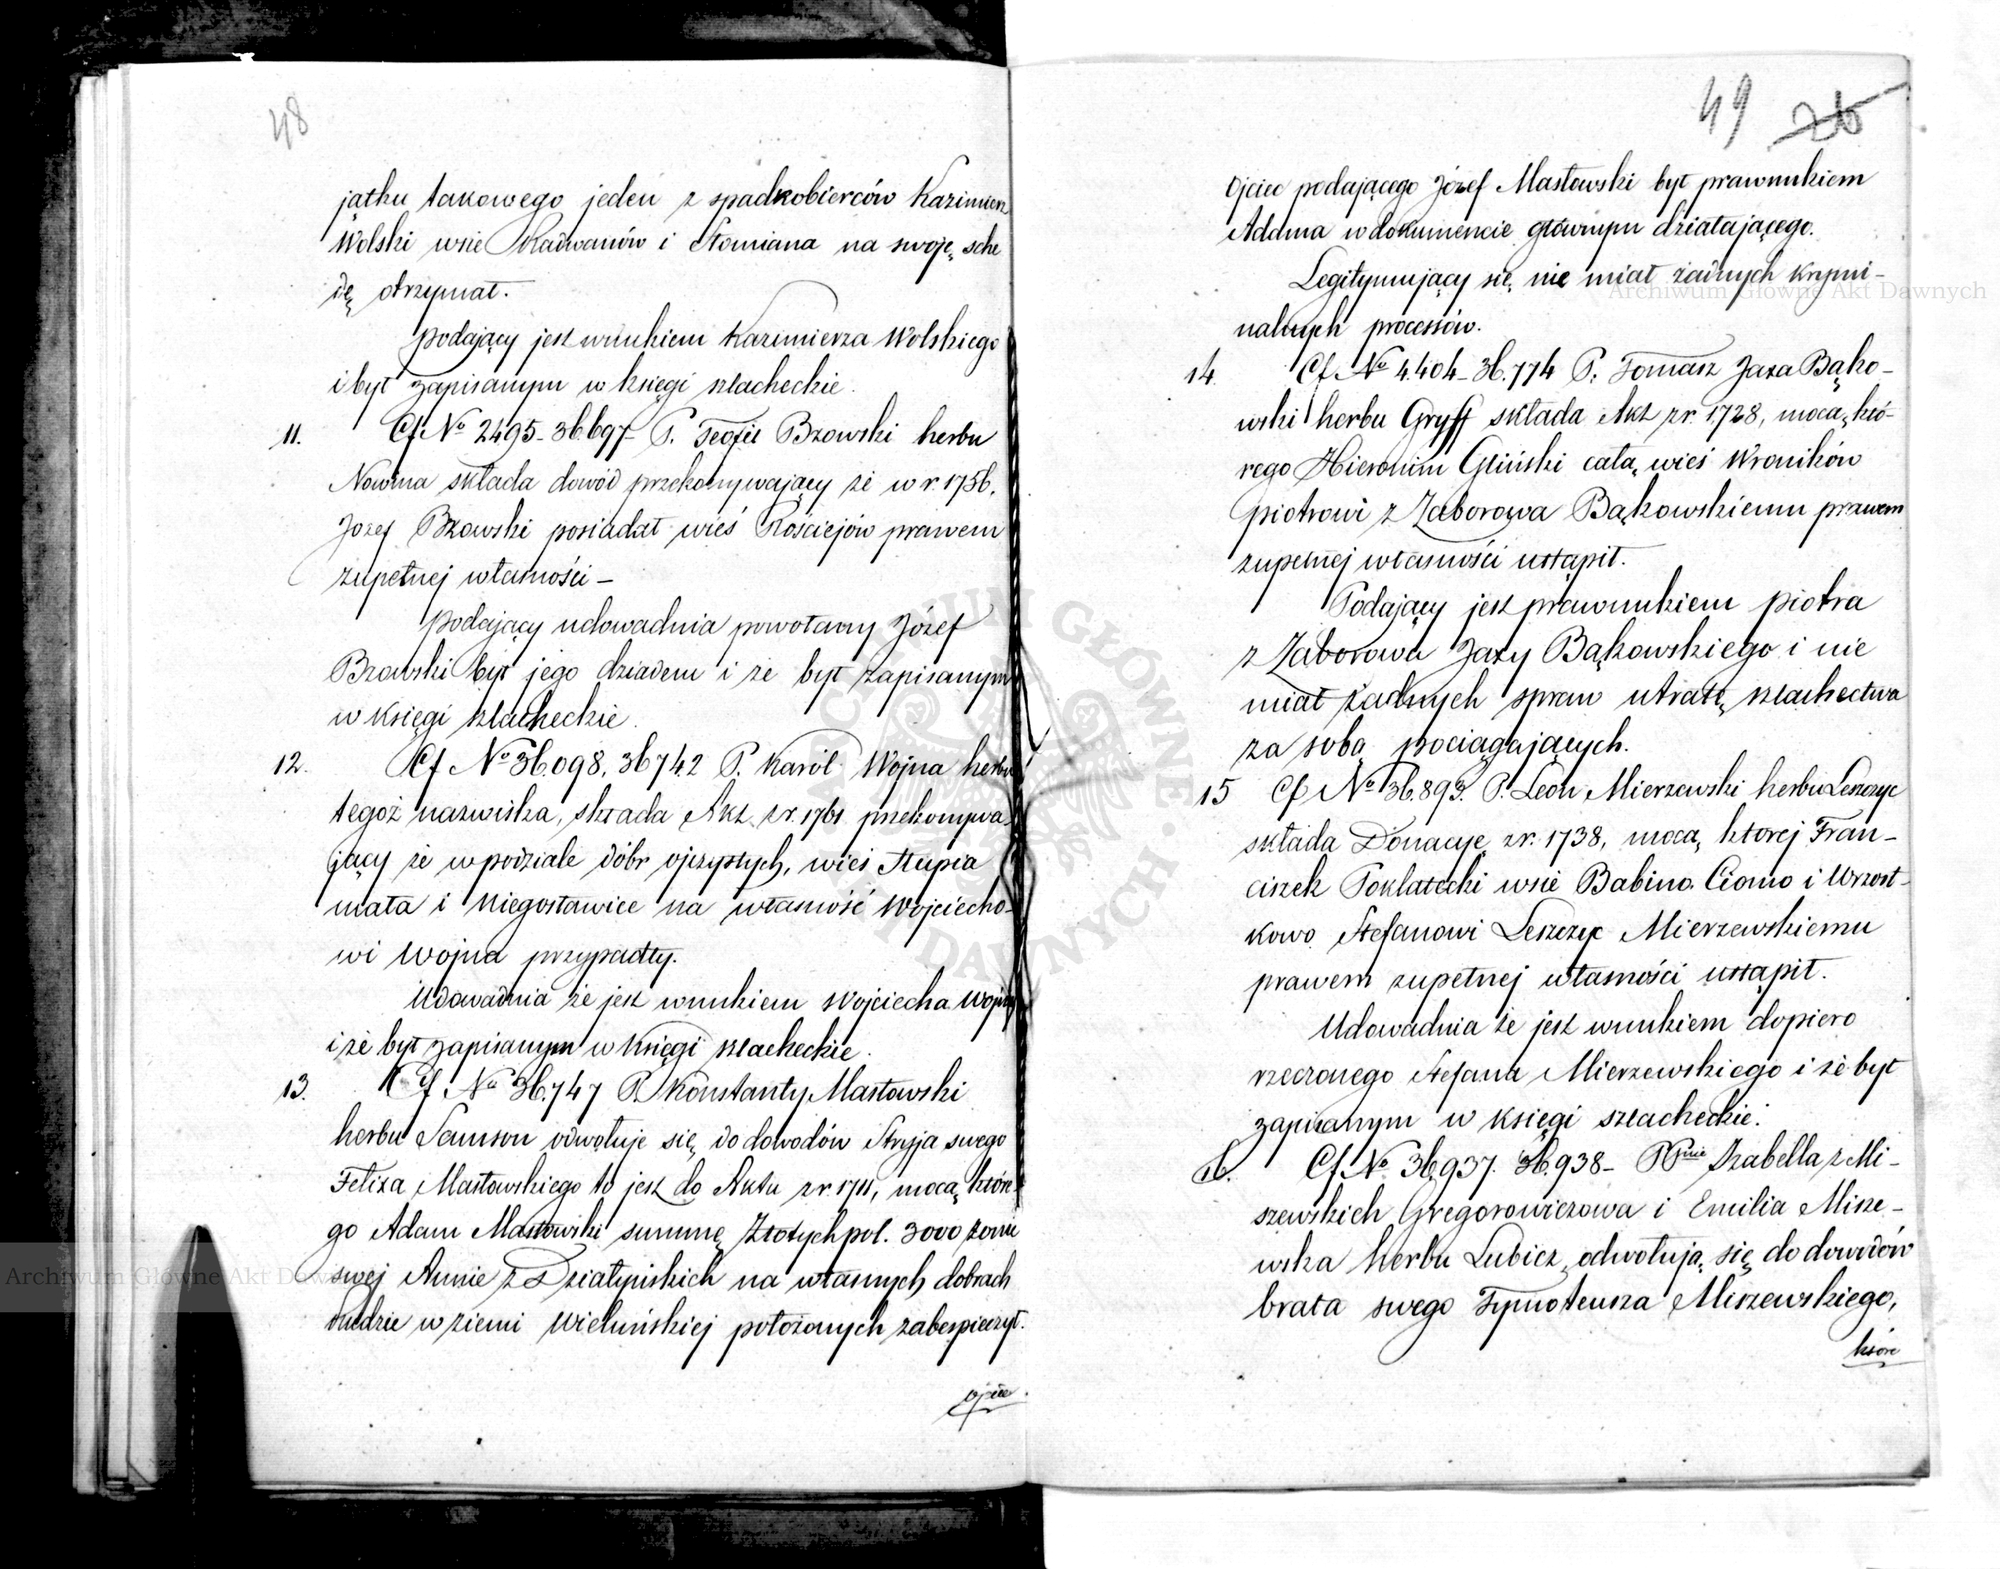 48
jątku takowego jeden z spadkobierców Kazimierz
Wolski wsie Radwanów i Słomiana na swoję sche
dę otrzymał.
Podający jest wnukiem Kazimierza Wolskiego
i był zapisanym w księgi szlacheckie.
11. Cf No 2495-36.697- P. Teofil Bzowski herbu
Nowina składa dowód przekonywający że w r. 1756.
Józef Bzowski posiadał wieś Kościejów prawem
zupełnej własności –
Podający udowadnia powołany Józef
Bzowski był jego dziadem i że był zapisanym
w księgi szlacheckie.
12. Cf No 36.098. 36742 P. Karól Wojna herbu
tegoż nazwiska, składa Akt z r. 1761 przekonywa-
jący że w podziale dóbr ojczystych, wieś Słupia
mała i Niegosławice na własność Wojciecho-
wi Wojna przypadły.
Udowadnia że jest wnukiem Wojciecha Wojny
i że był zapisanym w księgi szlacheckie.
13. Cf No 36.747 P. Konstanty Masłowski
herbu Samson odwołuje się do dowodów Stryja swego
Felixa Masłowskiego to jest do Aktu z r. 1711, mocą któr
go Adam Masłowski summę Złotych pol. 3000 żonie
swej Annie z Działyńskich na własnych dobrach
Rudzie w ziemi Wieluńskiej położonych zabespieczył.
ojciec
49 26
Ojciec podającego Józef Masłowski był prawnukiem
Adama w dokumencie głównym działającego.
Legitymujący się nie miał żadnych krymi-
nalnych processów.
14. Cf No 4.404-36.774 P. Tomasz Jaxa Bąko-
wski herbu Gryff składa Akt z r. 1728, mocą któ-
rego Hieronim Gliński całą wieś Wroników
Piotrowi z Zaborowa Bąkowskiemu prawem
zupełnej własności ustąpił.
Podający jest prawnukiem Piotra
z Zaborowa Jaxy Bąkowskiego i nie
miał żadnych spraw utratę szlachectwa
za sobą pociągających.
15 Cf No 36.893. P. Leon Mierzewski herbu Leszczyc
składa Donacyę z r. 1738, mocą ktorej Fran-
ciszek Poklatecki wsie Babino Ciomo i Wrzost-
kowo Stefanowi Leszczyc Mierzewskiemu
prawem zupełnej własności ustąpił.
Udowadnia że jest wnukiem dopiero
rzeczonego Stefana Mierzewskiego i że był
zapisanym w księgi szlacheckie.
16. Cf No 36.937. 36.938- PPnie Izabella z Mi-
szewskich Gregorowiczowa i Emilia Misze-
wska herbu Lubicz, odwołują się do dowodów
brata swego Tymoteusza Miszewskiego,
które
Archiwum Główne Akt Dawnych
Archiwum Główne Akt Dawnych
ARCHIWUM GŁÓWNE AKT DAWNYCH